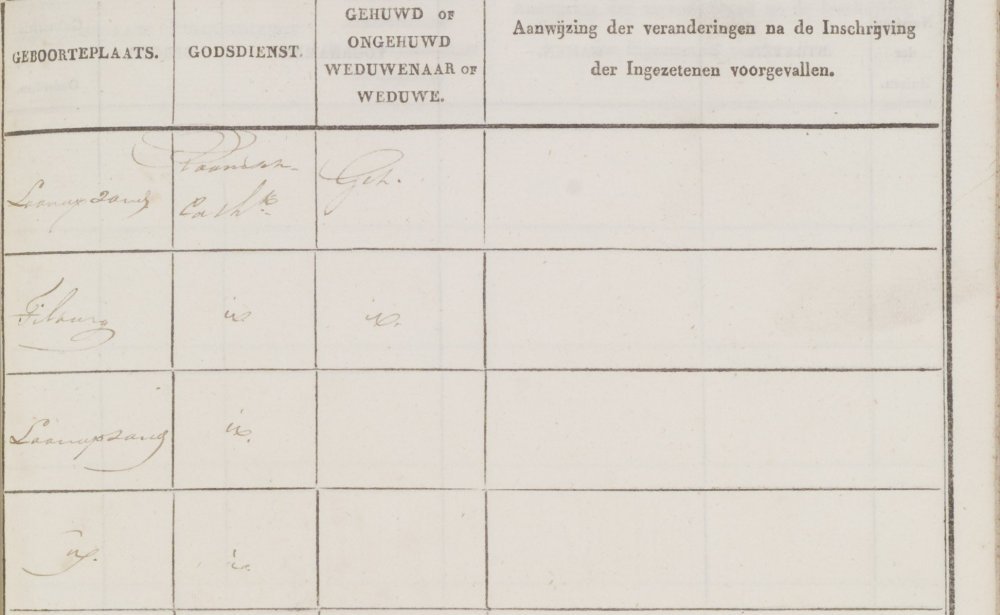 GEBOORTEPLAATS.
GODSDIENST.
GEHUWD OF
ONGEHUWD
WEDUWENAAR OF
WEDUWE.
Aanwijzing der veranderingen na de Inschrijving
der Ingezetenen voorgevallen.
Loonopzand
Roomsch
Cath.
Geh.
Tilburg
Loonopzand